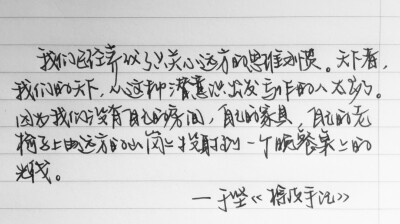 我们已经养成了只关心远方的思维习惯。天下者,
我们的天下,从这种潜意识出发写作的人太多。
因为我们没有自己的房间,自己的家具,自己的光
线是由远方的山岗上投射到一个脏餐桌上的
光线。
——于坚《棕皮手记》